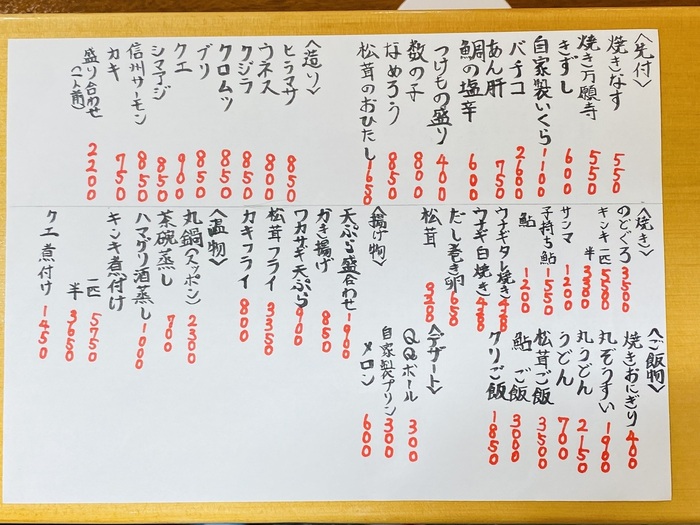 〈先付〉
焼きなす 550
焼き万願寺 550
きずし 600
自家製いくら 1100
バチコ 2600
あん肝 750
鯛の塩辛 600
つけもの盛り 400
数の子 800
なめろう 850
松茸のおひたし 1650
〈造り〉
ヒラマサ 850
ウネス 800
クジラ 850
クロムツ 850
ブリ 850
クエ 910
シマアジ 850
信州サーモン 850
カキ 750
盛り合わせ(一人前) 2200
〈焼き〉
のどぐろ 3500
キンキ一匹 5500
半 3300
サンマ 1200
子持ち鮎 1550
鮎 1200
ウナギタレ焼き
ウナギ白焼き
だし巻き卵 650
松茸
〈揚げ物〉
天ぷら盛合わせ 1900
かき揚げ 850
ワカサギ天ぷら 900
松茸フライ 3350
カキフライ 800
〈温物〉
丸鍋(スッポン) 2300
茶碗蒸し 700
ハマグリ酒蒸し 1000
キンキ煮付け
一匹 5750
半 3650
クエ煮付け 1450
〈ご飯物〉
焼きおにぎり 400
丸ぞうすい 1900
丸うどん 2150
うどん 700
松茸ご飯 3500
鮎ご飯 3000
クリご飯 1850
〈デザート〉
QQボール 300
自家製プリン 300
メロン 600